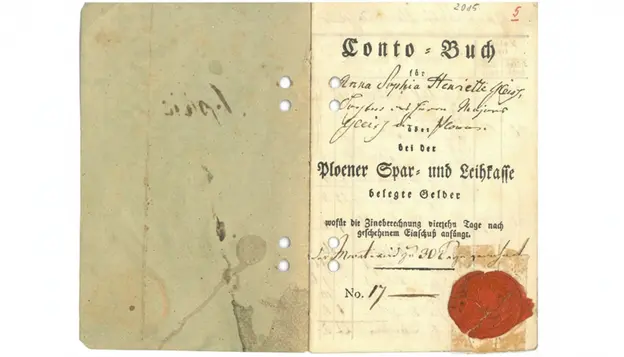 2005
5
Conto = Buch
für
Anna Sophia Henriette
Majors
über
bei der
Ploener Spar= und Leihkasse
belegte Gelder
wofür die Zinsberechnung vierzehn Tage nach
geschehenem Einschuß anfängt.
der Monat wird zu 30 Tage gerechnet
No. 17